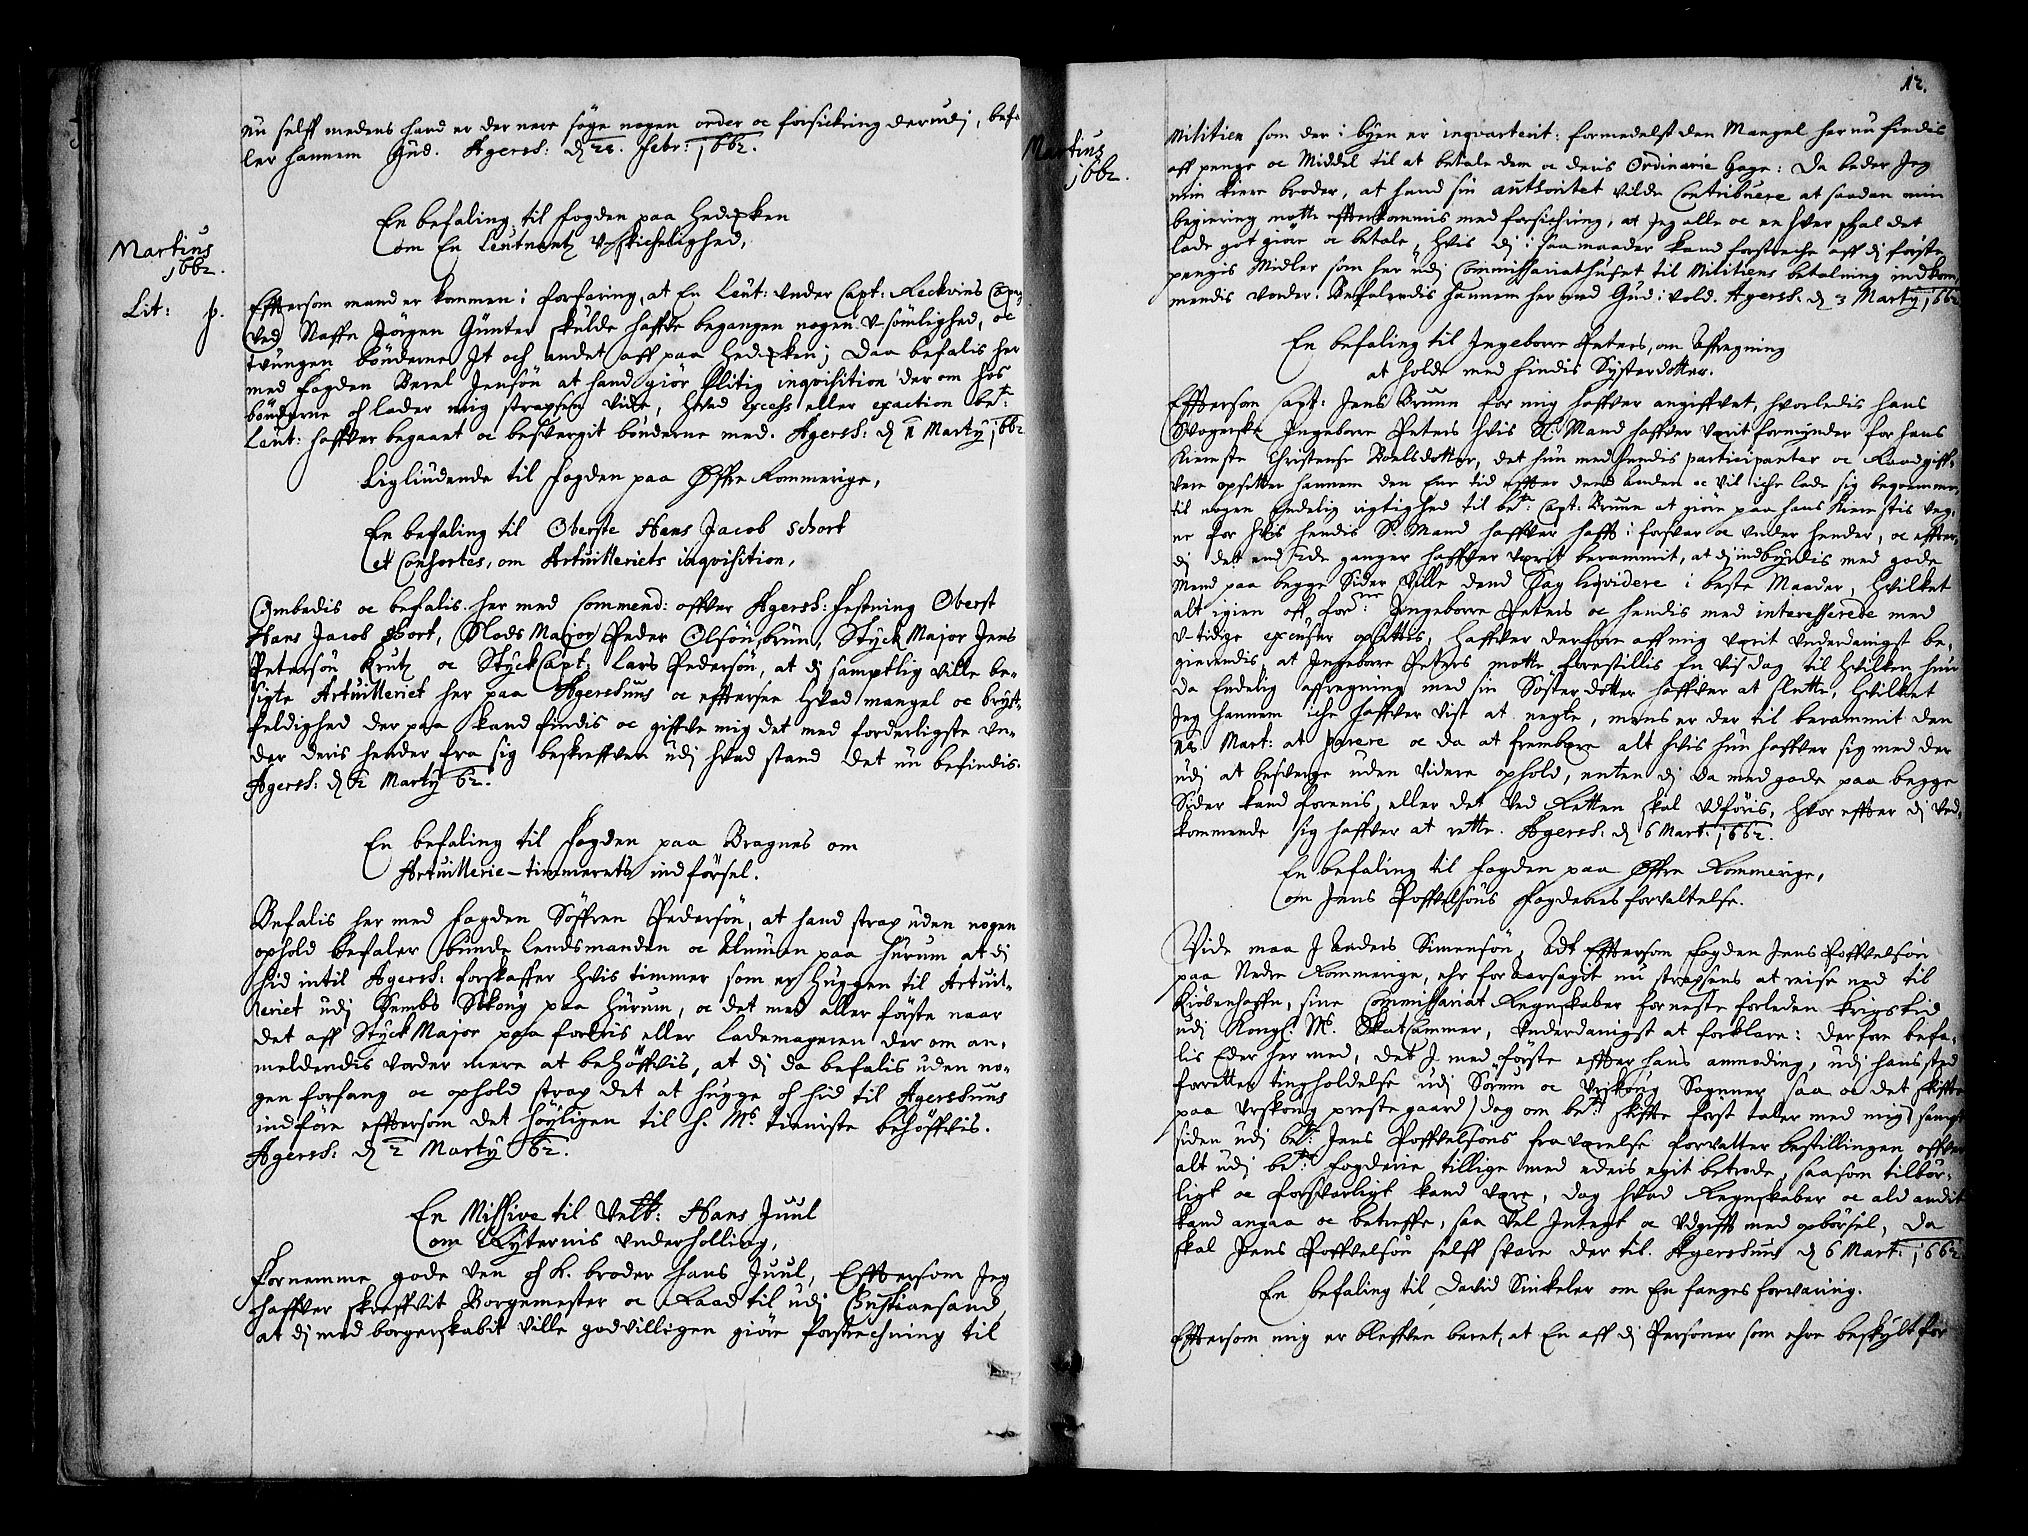 nu selff medens hand er der nere söge nogen order oc forsickring derudj, befa-
ler hannem Gud. Agersh: d 28. Febr: 1662.
En befaling til fogden paa Hedexken
om En Leutnantz Uskickelighed,
Martius
1662.
Lit: p.
Efftersom mand er kommen i forfaring, at En Leut: under Capt: Reckvins Comp:
ved Naffn Jörgen Günter skulde haffve begangen nogen U-sömlighed, oc
tvungen bönderne It och andet aff paa Hedexken; Daa befalis her
med fogden Berel Jensön at hand giör flitig inqvisition der om hos
bönderne oc lader mig strapsen vide, hvad excess eller exaction be:te
Leut: haffver begaaet oc besvergit bönderne med. Agersh: d 1 Martÿ 1662
Ligliudende til fogden paa Öffre Rommerige,
En befaling til Oberste Hans Jacob Schort
et Consortes, om Artuilleriets inqvisition,
Ombedis oc befalis her med Commend: offver Agersh: festning Oberst
Hans Jacob Schort, Slods Major Peder Olsön brun, Styck Major Jens
Petersön Krutz oc Styck Capt: Lars Pedersön, at dj samptlig ville be-
sigte Artuilleriet her paa Agershuus oc efftersee hvad mangel oc bröst-
feldighed der paa kand findis oc giffve mig det med forderligste un-
der deris hender fra sig beskreffven udj hvad stand det nu befindis.
Agersh: d 2 Martÿ 62.
En befaling til fogden paa Bragnes om
Artuillerie-timmerets indförsel.
Befalis her med fogden Söffren Pedersön, at hand strax uden nogen
ophold befaler bunde lendsmanden oc Almuen paa Hurum at di
hid intil Agersh: forskaffer hvis timmer som er huggen til Artuil-
leriet udj Sembs Skoug paa Hurum, oc det med aller förste naar
det aff Styck Major paa fordris eller Lademageren der om an-
meldendis vorder mere at behöffvis, at dj da befalis uden no-
gen forfang oc ophold strax det at hugge oc hid til Agershuus
indföre efftersom det höyligen til H. Ms. tieniste behöffvis.
Agersh: d 2 Martÿ 62.
En Missive til Velb: Hans Juul
om Rÿternis underholling,
Fornemme gode ven oc K. broder Hans Juul, Efftersom Jeg
haffver skreffvit Borgemester oc Raad til udj Christiansand
at dj med borgerskabit ville godvilligen giöre forstrechning til
12.
Martius
1662.
Militien som der i byen er inqvarterit: formedelst den Mangel her nu findis
aff penge oc Middel til at betale dem a deris Ordinarie Gage: Da beder Jeg
min kiere broder, at hand sin authoritet vilde Contribuere at saadan min
begiering motte effterkommis med forsickring, at Jeg alle oc en hver skal det
lade got giöre oc betale, hvis dj i saa maader kand forstreche aff dj förste
pengis Midler som her udj Commissariathuset til Militiens betalning indkom-
mendis vorder. Befalendis hannem her med Gud: vold. Agersh: d 3 Martÿ 1662
En befaling til Ingeborre Peters, om Affregning
at holde med hindis Systerdotter.
Efftersom Capt: Jens Bruun for mig haffver angiffvet, hvorledis hans
Svogerske Ingeborre Peters hvis S: Mand haffver værit formynder for hans
kiereste Christense Boelsdotter, det hun med hendis participanter oc Raadgiff-
vere opsetter hannem den Ene tid effter dend Anden oc vil iche lade sig beqvemme
til nogen Endelig rigtighed til be:te Capt: Bruun at giöre paa hans kierestis veg-
ne for hvis hendis S: Mand haffver hafft i forvar oc under hender, oc effter-
dj det end fide ganger haffver værit berammit, at dj indbyrdis med gode
Mend paa begge Sider ville dend Sag liqvidere i beste Maader, hvilket
alt igien aff for:ne Ingeborre Peters oc hendis med interesserede med
U-tidige excuser opsettis, haffver derfore aff mig værit underdanigst be-
gierendis, at Ingeborre Peters motte forrestillis En vis dag til hvilken hun
da Endelig affregning med sin Söster dotter haffver at slutte, hvilket
Jeg hannem iche haffver vist at negte, mens er der til berammit den
12 Mart: at parere oc da at frembære alt hvis hun haffver sig med der
udj at besverge uden videre ophold, enten dj da med gode paa begge
Sider kand forenis, eller det ved Retten skal udföris, hvor effter dj ved-
kommende sig haffver at rette. Agersh: d 6 Mart: 1662.
En befaling til fogden paa Öffre Rommerige,
om Jens Poffvelsöns fogderies forvaltelse.
Vide maa J Anders Simensön, Adt Efftersom fogden Jens Poffvelsön
paa Nedre Rommerige, ehr for aarsagit nu strapsens at reise ned til
Kiöbenhaffn, sine Commissariat Regnskaber for neste forleden krigs tid
udj Kongl: Ms. Skatkammer, underdanigst at forklare: derfore befa-
lis Eder her med, det J. med förste effter hans anmoding, udj hans sted
forretter tingholdelse udj Sörum oc Urskoug Sogner saa oc det skiffte
paa Urskoug preste gaard, dog om be:te skiffte först taler med mig, sampt
siden udj be:te Jens Poffvelsöns fraværelse forvalter bestillingen offver
alt udj be:te fogderie tillige med eders egit betrode, saasom tilbör-
ligt oc forsvarligt kand være, dog hvad Regnskaber oc ald andit
kand angaa oc betreffe, saa vel Integt oc udgifft med opbörsel, da
skal Jens Poffvelsön selff svare der til. Agershuus d 6 Mart: 1662
En befaling til David Sinkeler om En fanges forvaring.
Efftersom mig er bleffven beret, at En aff dj Personer som ehre beskyldt for